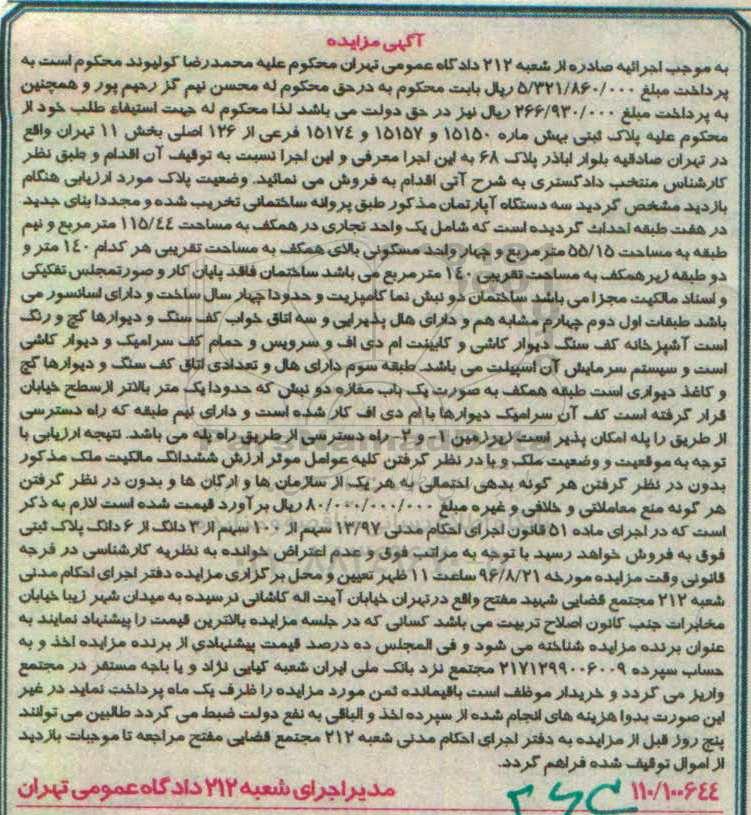 آگهی مزایده
به موجب اجرائیه صادره از شعبه ۲۱۲ دادگاه عمومی تهران محکوم علیه محمدرضا کولیوند محکوم است به
پرداخت مبلغ ۵/۳۲۱/۸۶۰/۰۰۰ ریال بابت محکوم به درحق محکوم له محسن نیم گز رحیم پور و همچنین
به پرداخت مبلغ ۲۶۶/۹۳۰/۰۰۰ ریال نیز در حق دولت می باشد لذا محکوم له جهت استیفاء طلب خود از
محکوم علیه پلاک ثبتی بهش ماره ۱۵۱۵۰ و ۱۵۱۵۷ و ۱۵۱۷۴ فرعی از ۱۲۶ اصلی بخش ۱۱ تهران واقع
در تهران صادقیه بلوار اباذر پلاک ۶۸ به این اجرا معرفی و این اجرا نسبت به توقیف آن اقدام و طبق نظر
کارشناس منتخب دادگستری به شرح آتی اقدام به فروش می نمائید. وضعیت پلاک مورد ارزیابی هنگام
بازدید مشخص گردید سه دستگاه آپارتمان مذکور طبق پروانه ساختمانی تخریب شده و مجددا بنای جدید
در هفت طبقه احداث گردیده است که شامل یک واحد تجاری در همکف به مساحت ۱۱۵/۴۴ متر مربع و نیم
طبقه به مساحت ۵۵/۱۵ متر مربع و چهار واحد مسکونی بالای همکف به مساحت تقریبی هر کدام ۱۴۰ متر و
دو طبقه زیرهمکف به مساحت تقریبی ۱۴۰ مترمربع می باشد ساختمان فاقد پایان کار و صورتمجلس تفکیکی
و اسناد مالکیت مجزا می باشد. ساختمان دو نبش نما کامپزیت و حدودا چهار سال ساخت و دارای آسانسور می
باشد طبقات اول دوم چهارم مشابه هم و دارای هال پذیرایی و سه اتاق خواب کف سنگ و دیوارها گچ و رنگ
است آشپزخانه کف سنگ دیوار کاشی و کابینت ام دی اف و سرویس و حمام کف سرامیک و دیوار کاشی
است و سیستم سرمایش آن اسپیلت می باشد. طبقه سوم دارای هال و تعدادی اتاق کف سنگ و دیوارها گچ
و کاغذ دیواری است طبقه همکف به صورت یک باب مغازه دو نبش که حدودا یک متر بالاتر ازسطح خیابان
قرار گرفته است کف آن سرامیک دیوارها با ام دی اف کار شده است و دارای نیم طبقه که راه دسترسی
از طریق را پله امکان پذیر است زیرزمین ۱- و ۲- راه دسترسی از طریق راه پله می باشد. نتیجه ارزیابی با
توجه به موقعیت و وضعیت ملک و با در نظر گرفتن کلیه عوامل موثر ارزش ششدانگ مالکیت ملک مذکور
بدون در نظر گرفتن هر گونه بدهی احتمالی به هر یک از سازمان ها و ارگان ها و بدون در نظر گرفتن
هر گونه منع معاملاتی و خلافی و غیره مبلغ ۸۰/۰۰۰/۰۰۰/۰۰۰ ریال برآورد قیمت شده است لازم به ذکر
است که در اجرای ماده ۵۱ قانون اجرای احکام مدنی ۱۳/۹۷ سهم از ۱۰۰ سهم از ۳ دانگ از ۶ دانگ پلاک ثبتی
فوق به فروش خواهد رسید با توجه به مراتب فوق و عدم اعتراض خوانده به نظریه کارشناسی در فرجه
قانونی وقت مزایده مورخه ۹۶/۸/۲۱ ساعت ۱۱ ظهر تعیین و محل برگزاری مزایده دفتر اجرای احکام مدنی
شعبه ۲۱۲ مجتمع قضایی شهید مفتح واقع درتهران خیابان آیت اله کاشانی نرسیده به میدان شهر زیبا خیابان
مخابرات جنب کانون اصلاح تربیت می باشد کسانی که در جلسه مزایده بالاترین قیمت را پیشنهاد نمایند به
عنوان برنده مزایده شناخته می شود و فی المجلس ده درصد قیمت پیشنهادی از برنده مزایده اخذ و به
حساب سپرده ۲۱۷۱۲۹۹۰۰۶۰۰۹ مجتمع نزد بانک ملی ایران شعبه کیایی نژاد و یا باجه مستقر در مجتمع
واریز می گردد و خریدار موظف است باقیمانده ثمن مورد مزایده را ظرف یک ماه پرداخت نماید در غیر
این صورت بدوا هزینه های انجام شده از سپرده اخذ و الباقی به نفع دولت ضبط می گردد طالبین می توانند
پنج روز قبل از مزایده به دفتر اجرای احکام مدنی شعبه ۲۱۲ مجتمع قضایی مفتح مراجعه تا موجبات بازدید
از اموال توقیف شده فراهم گردد.
۱۱۰/۱۰۰۶۴۴ مدیراجرای شعبه ۲۱۲ دادگاه عمومی تهران